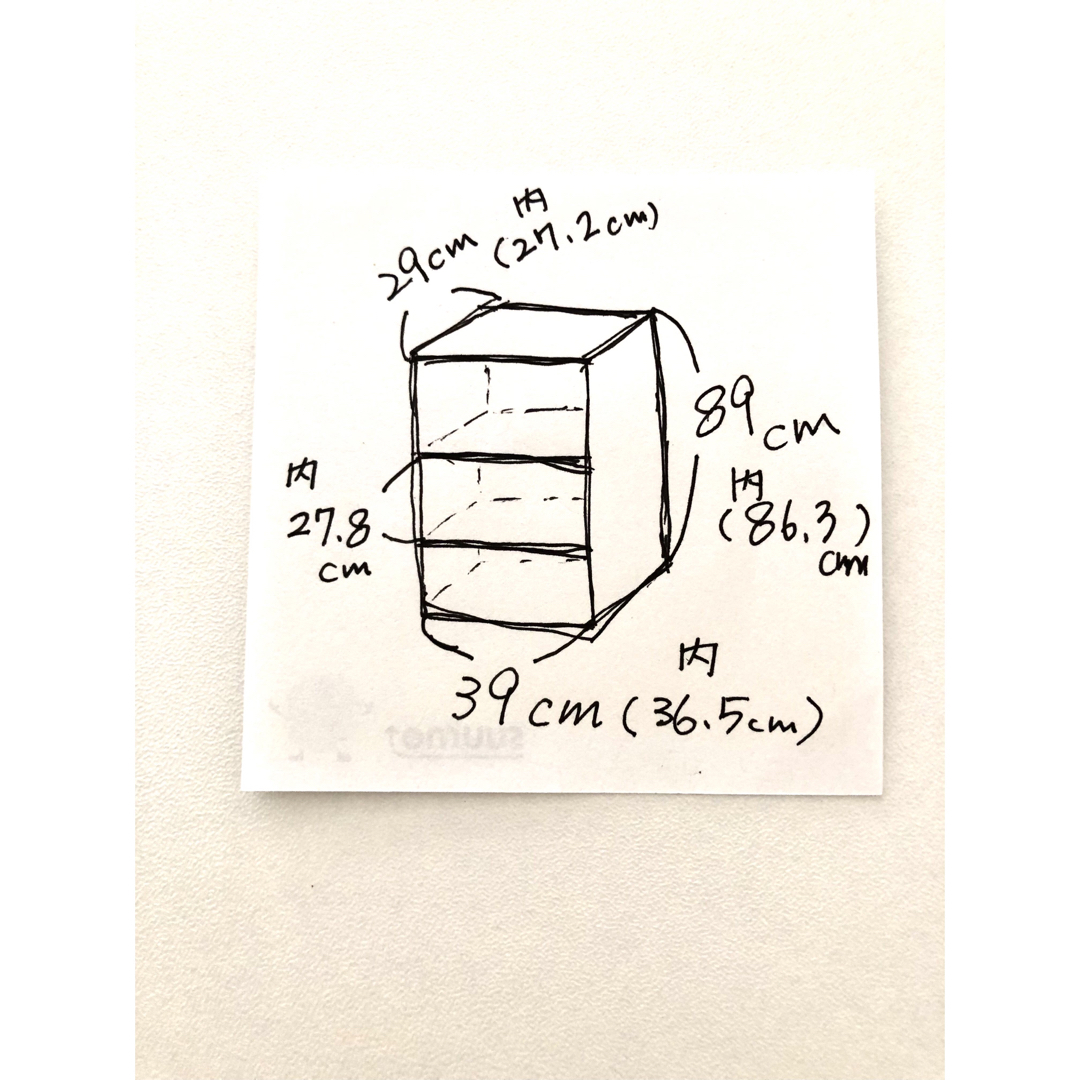 内
29cm (27.2cm)
89cm
内
27.8
cm
内
(86.3)
cm
内
39cm (36.5cm)